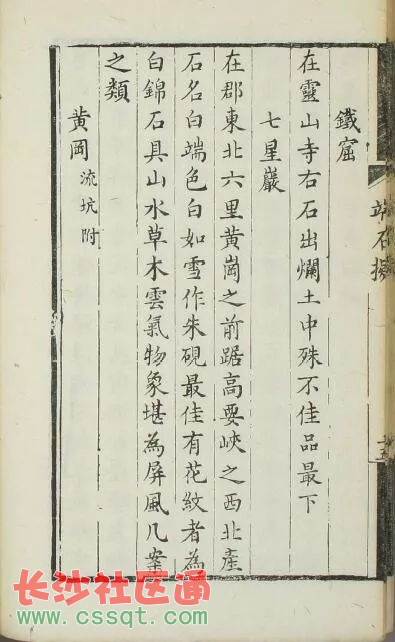 鐵窟
在靈山寺右石出爛土中殊不佳品最下
七星巖
在郡東北六里黃崗之前踞高要峽之西北產
石名白端色白如雪作朱硯最佳有花紋者為
白錦石具山水草木雲氣物象堪為屏風几案
之類
黃岡 流坑附
端石擬
十五
长沙社区通
www.cssqt.com